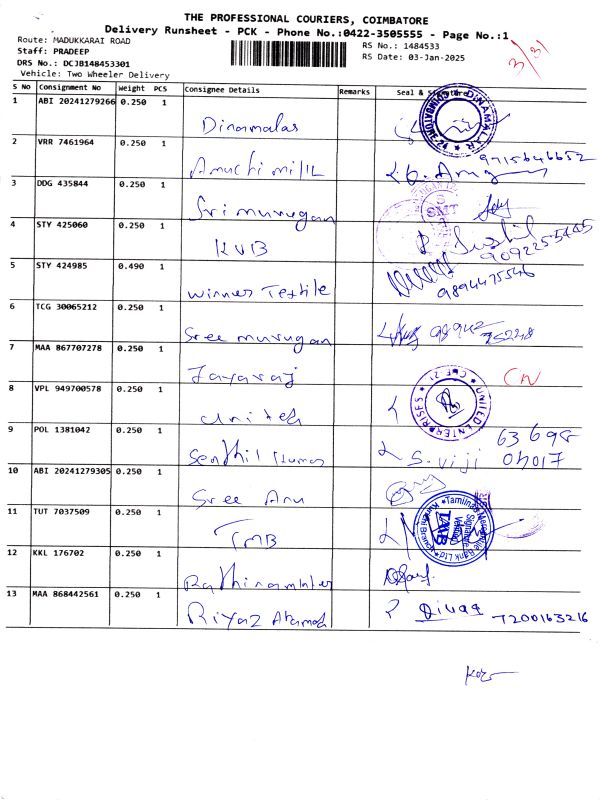 THE PROFESSIONAL COURIERS, COIMBATORE
Delivery Runsheet - PCK - Phone No.:0422-3505555 - Page No.:1
Route: MADUKKARAI ROAD
Staff: PRADEEP
DRS No.: DCJB148453301
Vehicle: Two Wheeler Delivery
RS No.: 1484533
RS Date: 03-Jan-2025
3/31
S No Consignment No Weight PCS Consignee Details Remarks Seal & Signature
1 ABI 20241279266 0.250 1 Dinamalar
DINAMALAR
2 VRR 7461964 0.250 1 9715646652
3 DDG 435844 0.250 1 Sri murugan
4 STY 425060 0.250 1 KVB Sushil
9092255445
5 STY 424985 0.490 1 Winner Textile 9894475546
6 TCG 30065212 0.250 1 Sree murugan 98942 75228
7 MAA 867707278 0.250 1 Jayaraj CN
8 VPL 949700578 0.250 1 United
UNITED ENTERPRISES
9 POL 1381042 0.250 1 Senthil Kumar S. Viji 63698 04017
10 ABI 20241279305 0.250 1 Sree Anu
11 TUT 7037509 0.250 1 TMB
Tamilnad Mercantile Bank Ltd
TMB
Signature Verified
12 KKL 176702 0.250 1
13 MAA 868442561 0.250 1 Riyaz Ahamed 7200163216